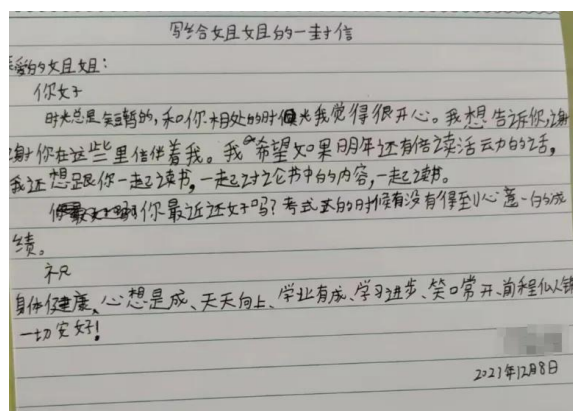 写给姐姐的一封信
亲爱的姐姐：
你好
时光总是短暂的，和你相处的时光我觉得很开心。我想告诉你，谢
谢你在这些里倍伴着我。我希望如果明年还有倍读活动的话，
我还想跟你一起读书，一起讨论书中的内容，一起读书。
你最近还好吗？考试的时候有没有得到心意的成
绩。
祝
身体健康、心想是成、天天向上、学业有成、学习进步、笑口常开、前程似锦
一切安好！
2021年12月8日